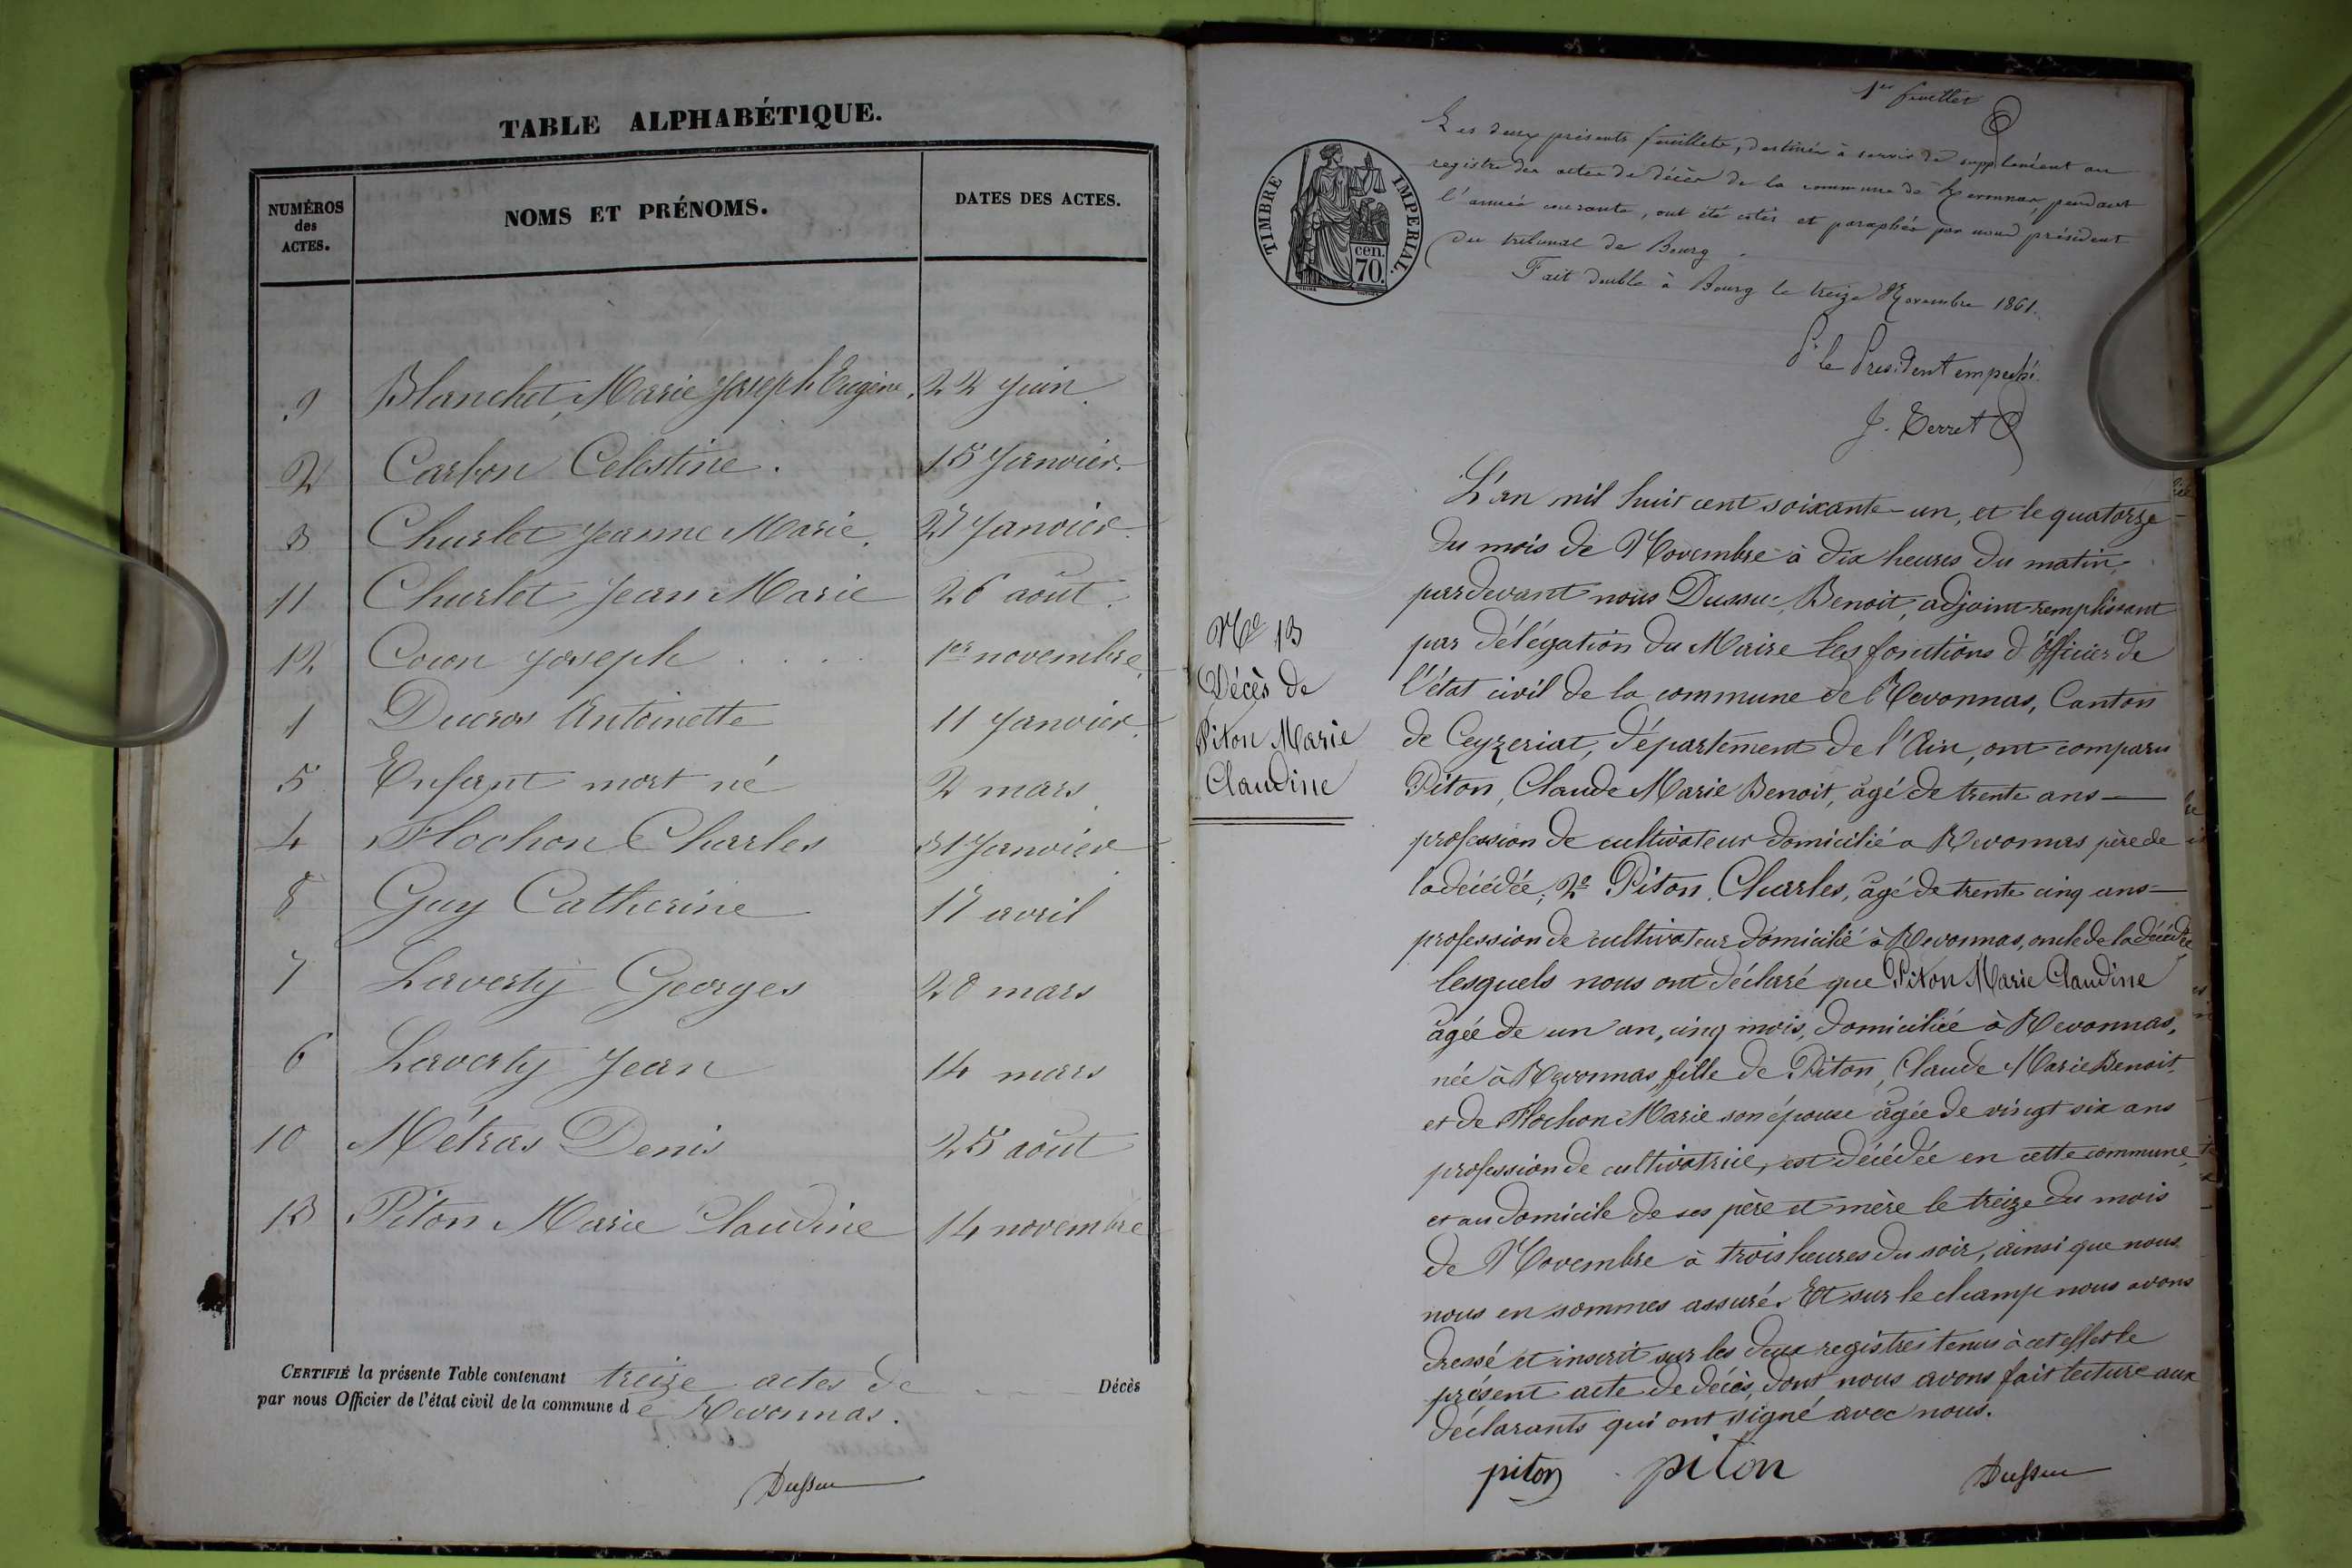 TABLE ALPHABÉTIQUE.
NUMÉROS des ACTES. NOMS ET PRÉNOMS. DATES DES ACTES.
9 Blanchet, Marie Joseph Eugène. 22 Juin.
2 Carbon Celestine. 15 Janvier.
3 Churlet Jeanne Marie. 27 Janvier.
11 Churlet Jean Marie 26 août.
12 Coron Joseph . . . . 1er novembre.
1 Ducros Antoinette 11 Janvier.
5 Enfant mort né 2 mars
4 Flochon Charles 31 Janvier
8 Guy Catherine 17 avril
7 Laverty Georges 28 mars
6 Laverty Jean 14 mars
10 Métras Denis 25 août
13 Piton Marie Claudine 14 novembre
CERTIFIÉ la présente Table contenant treize actes de Décès
par nous Officier de l'état civil de la commune de Revonnas.
Dussuc
1er feuillet
Les deux présents feuillets, destinés à servir de supplément au
registre des actes de décès de la commune de Revonnas, pendant
l'année courante, ont été cotés et paraphés par nous président
du tribunal de Bourg.
Fait double à Bourg le treize Novembre 1861.
Pr le President empeché.
J. Terret
TIMBRE IMPERIAL.
70 cen.
L'an mil huit cent soixante-un, et le quatorze
du mois de Novembre à dix heures du matin,
pardevant nous Dussuc, Benoit, adjoint remplissant
par délégation du Maire les fonctions d'Officier de
l'état civil de la commune de Revonnas, Canton
de Ceyzeriat, département de l'Ain, ont comparu
Piton, Claude Marie Benoit, âgé de trente ans —
profession de cultivateur domicilié a Revonnas père de
la décédée; 2e Piton, Charles, âgé de trente cinq ans —
profession de cultivateur domicilié à Revonnas, oncle de la décédée
lesquels nous ont déclaré que Piton Marie Claudine
âgée de un an, cinq mois, domiciliée à Revonnas,
née à Revonnas fille de Piton, Claude Marie Benoit,
et de Flochon Marie son épouse âgée de vingt six ans
profession de cultivatrice, est décédée en cette commune,
et au domicile de ses père et mère le treize du mois
de Novembre à trois heures du soir, ainsi que nous
nous en sommes assuré. Et sur le champ nous avons
dressé et inscrit sur les deux registres tenus à cet effet le
présent acte de décès, dont nous avons fait lecture aux
déclarants qui ont signé avec nous.
No 13
Décès de
Piton Marie
Claudine
piton piton Dussuc